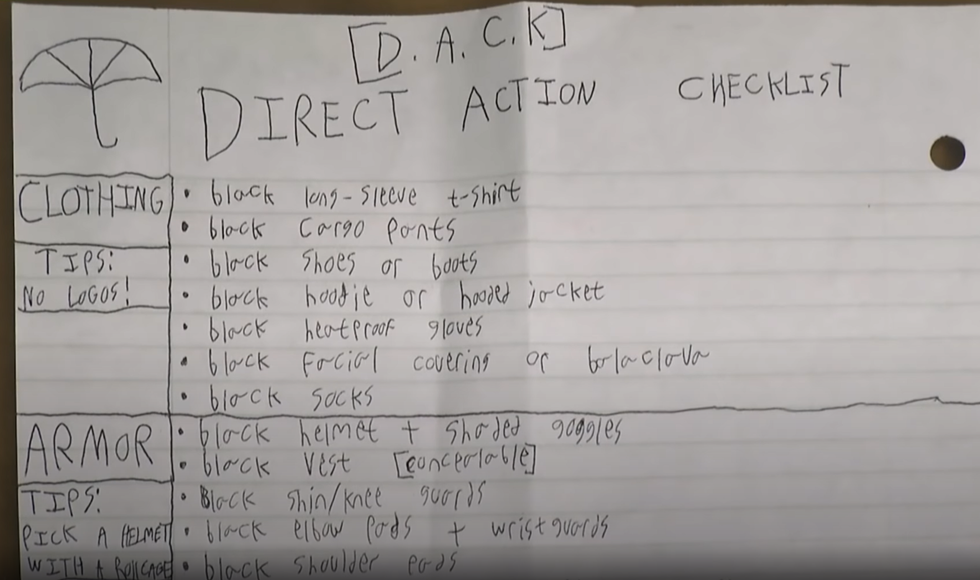 [D.A.C.K]
DIRECT ACTION CHECKLIST
CLOTHING
• black long-sleeve t-shirt
• black cargo pants
TIPS:
• black shoes or boots
NO LOGOS!
• black hoodie or hooded jacket
• black heatproof gloves
• black facial covering or balaclava
• black socks
ARMOR
• black helmet + shaded goggles
• black vest [concealable]
TIPS:
• Black shin/knee guards
PICK A HELMET
• black elbow pads + wristguards
WITH A ROLLCAGE
• black shoulder pads